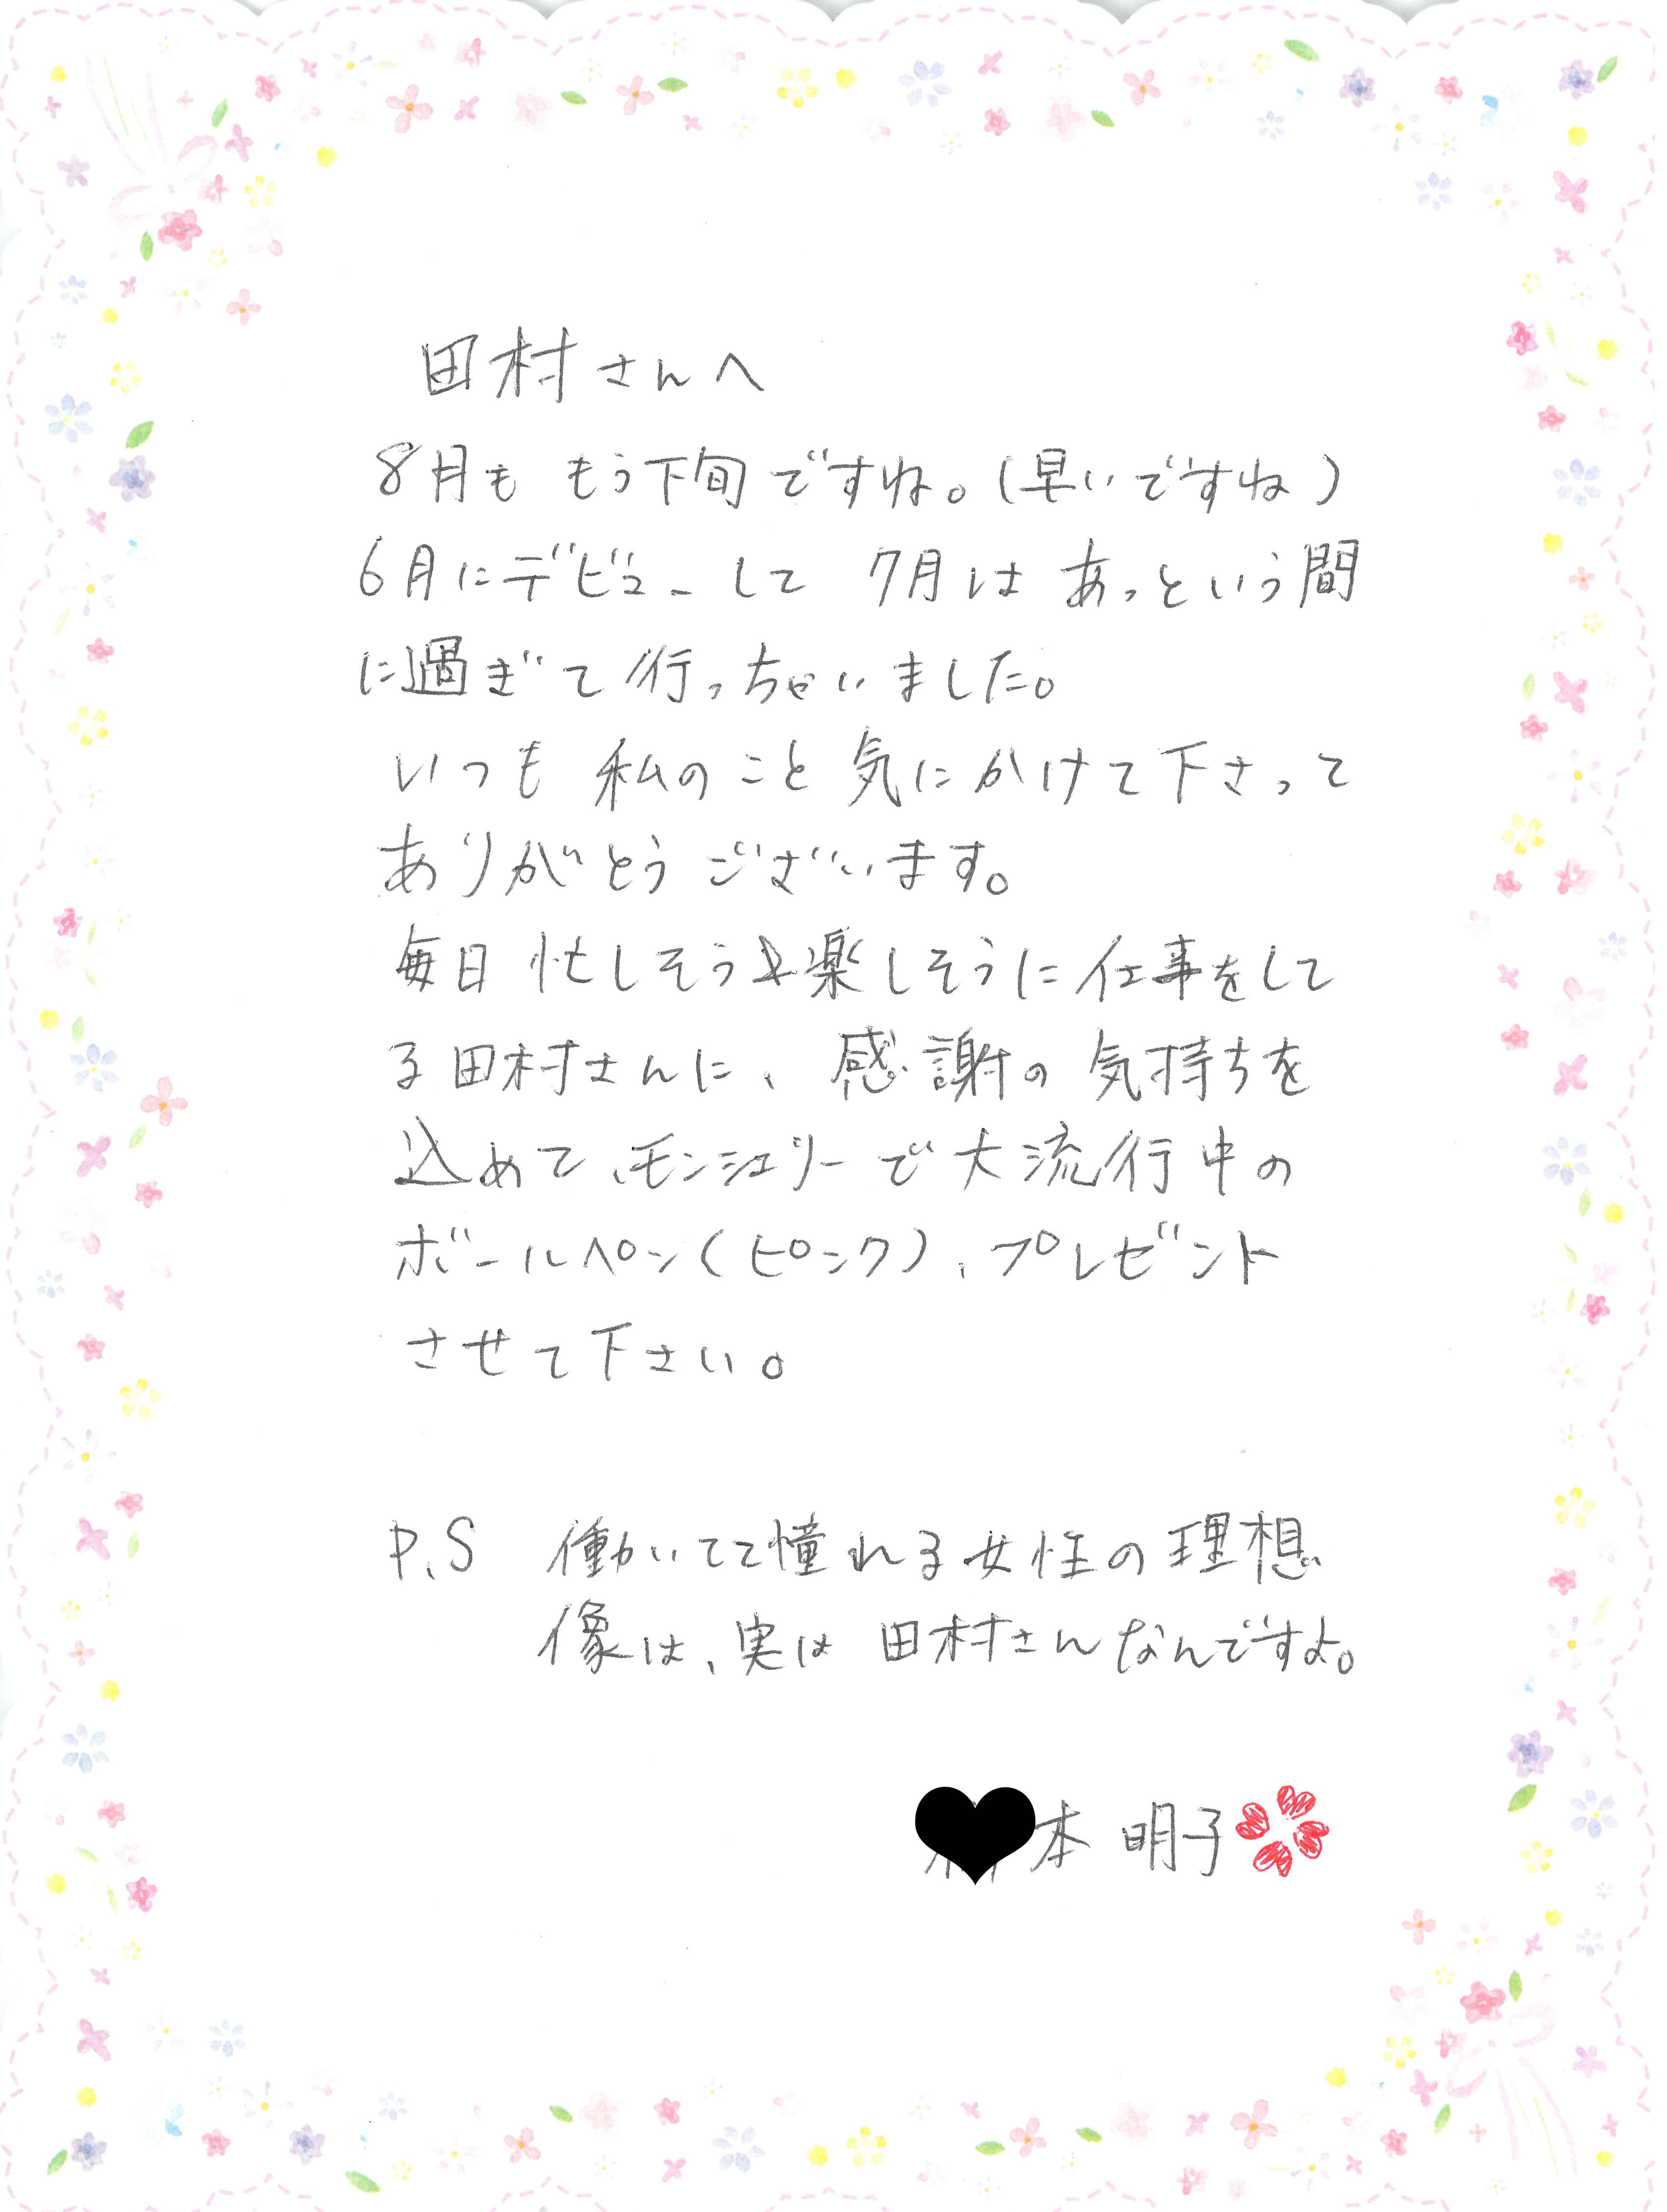 田村さんへ
8月も もう下旬ですね。(早いですね)
6月にデビューして 7月は あっという間
に過ぎて行っちゃいました。
いつも 私のこと 気にかけて下さって
ありがとうございます。
毎日 忙しそう 楽しそうに仕事をして
る田村さんに、感謝の気持ちを
込めて、モンシェリーで大流行中の
ボールペン(ピンク)、プレゼント
させて下さい。
P.S 働いてて憧れる女性の理想
像は、実は 田村さんなんですよ。
本 明子